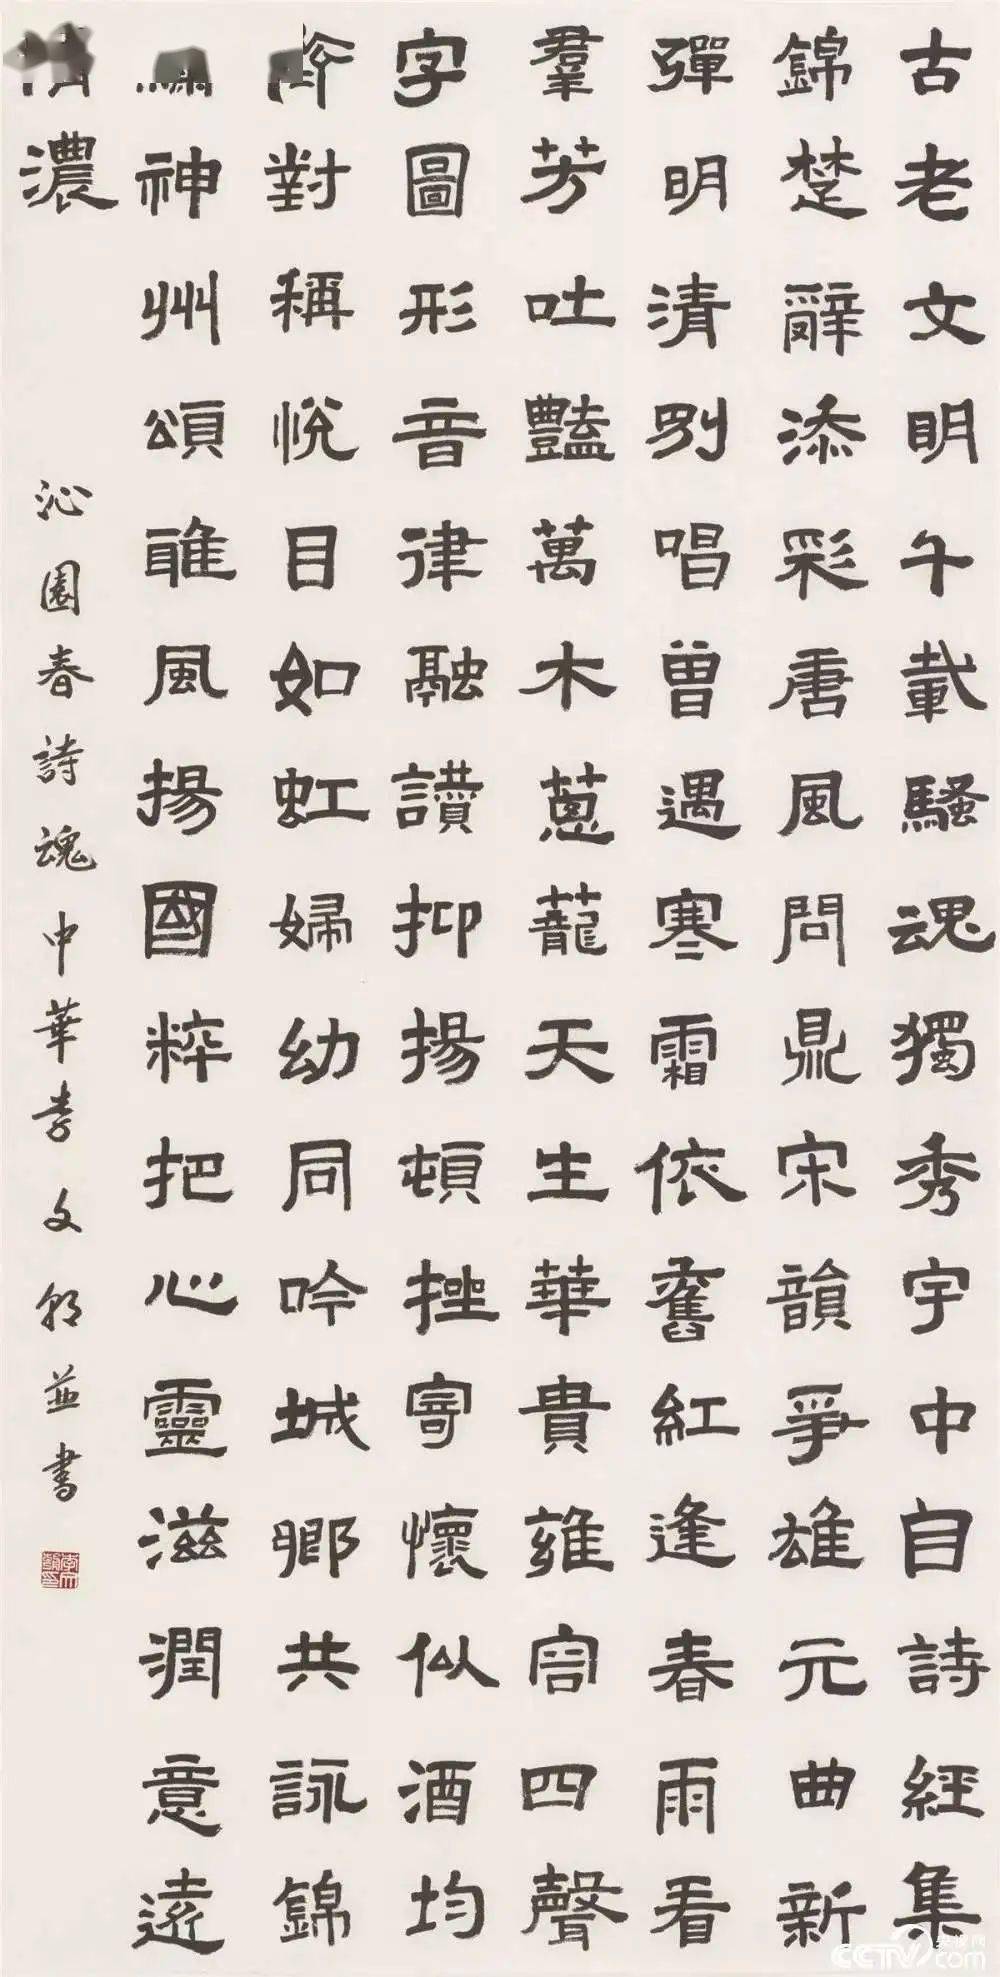 古老文明千載騷魂獨秀宇中自詩經集
錦楚辭添彩唐風問鼎宋韻爭雄元曲新
彈明清別唱曾遇寒霜依舊紅逢春雨看
羣芳吐豔萬木蔥蘢天生華貴雍容四聲
字圖形音律融讚抑揚頓挫寄懷似酒均
對稱悅目如虹婦幼同吟城鄉共詠錦
神州頌雅風揚國粹把心靈滋潤意遠
濃
沁園春詩魂中華李文朝並書
央视网
CCTV.com